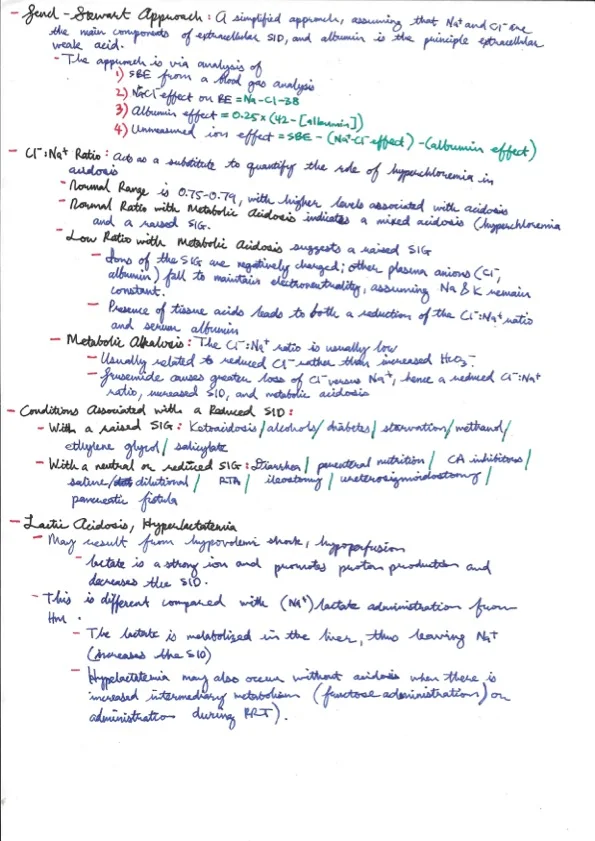 - Fencl-Stewart Approach: A simplified approach, assuming that Na⁺ and Cl⁻ are
the main components of extracellular SID, and albumin is the principle extracellular
weak acid.
- The approach is via analysis of
1) SBE from a blood gas analysis
2) NaCl effect on BE = Na-Cl-38
3) Albumin effect = 0.25 x (42 - [albumin])
4) Unmeasured ion effect = SBE - (Na⁺-Cl⁻ effect) - (albumin effect)
- Cl⁻:Na⁺ Ratio: Acts as a substitute to quantify the role of hyperchloremia in
acidosis
- Normal Range is 0.75-0.79, with higher levels associated with acidosis
- Normal Ratio with Metabolic Acidosis indicates a mixed acidosis (hyperchloremia
and a raised SIG.
- Low Ratio with Metabolic Acidosis suggests a raised SIG
- Ions of the SIG are negatively charged; other plasma anions (Cl⁻,
albumin) fall to maintain electroneutrality, assuming Na & K remain
constant.
- Presence of tissue acids leads to both a reduction of the Cl⁻:Na⁺ ratio
and serum albumin
- Metabolic Alkalosis: The Cl⁻:Na⁺ ratio is usually low
- Usually related to reduced Cl⁻ rather than increased HCO₃⁻.
- Frusemide causes greater loss of Cl⁻ versus Na⁺, hence a reduced Cl⁻:Na⁺
ratio, increased SID, and metabolic acidosis
- Conditions Associated with a Reduced SID:
- With a raised SIG: Ketoacidosis / alcohols / diabetes / starvation / methanol /
ethylene glycol / salicylate
- With a neutral or reduced SIG: Diarrhea / parenteral nutrition / CA inhibitors /
saline / dilutional / RTA / ileostomy / ureterosigmoidostomy /
pancreatic fistula
- Lactic Acidosis, Hyperlactatemia
- May result from hypovolemic shock, hypoperfusion
- lactate is a strong ion and promotes proton production and
decreases the SID.
- This is different compared with (Na⁺) lactate administration from
- The lactate is metabolized in the liver, thus leaving Na⁺
(increases the SID)
- Hyperlactatemia may also occur without acidosis when there is
increased intermediary metabolism (fructose administration) or
administration during RRT).